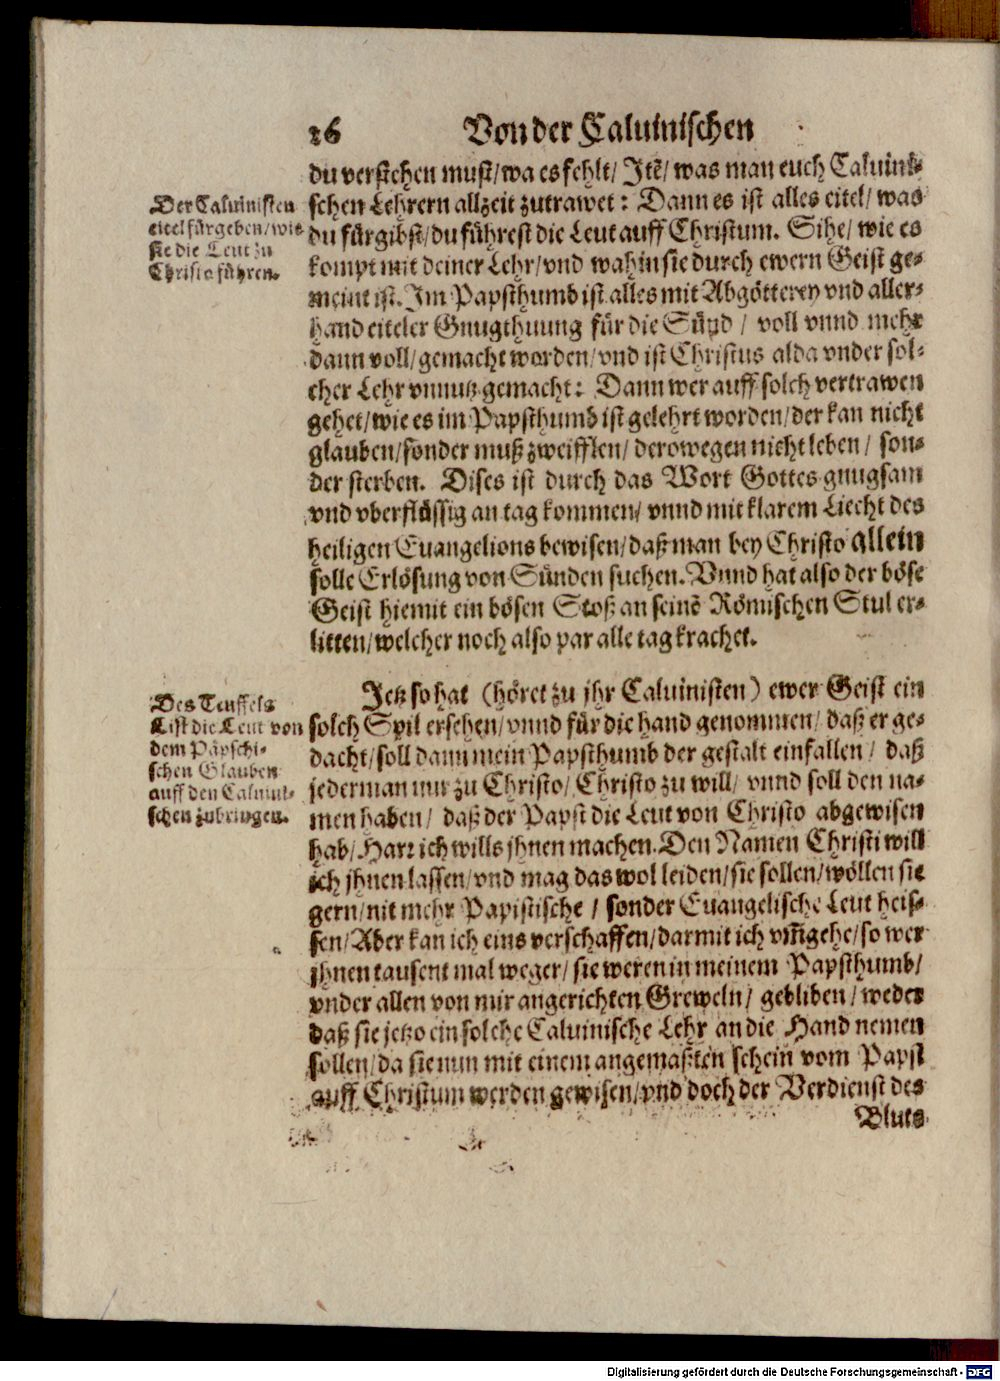 16 Von der Caluinischen
du verstehen must/wa es fehlt/ Itẽ/ was man euch Caluini-
schen Lehrern allzeit zutrawet: Dann es ist alles eitel/ was
du fürgibst/du führest die Leut auff Christum. Sihe/ wie es
kompt mit deiner Lehr/vnd wahin sie durch ewern Geist ge-
meint ist. Im Papsthumb ist alles mit Abgötterey vnd aller-
hand eiteler Gnugthuung für die Sünd / voll vnnd mehr
dann voll/gemacht worden/vnd ist Christus alda vnder sol-
cher Lehr vnnutz gemacht: Dann wer auff solch vertrawen
gehet/wie es im Papsthumb ist gelehrt worden/der kan nicht
glauben/sonder muß zweifflen/ derowegen nicht leben / son-
der sterben. Dises ist durch das Wort Gottes gnugsam
vnd vberflüssig an tag kommen/ vnnd mit klarem Liecht des
heiligen Euangelions bewisen/daß man bey Christo allein
solle Erlösung von Sünden suchen. Vnnd hat also der böse
Geist hiemit ein bösen Stoß an seinẽ Römischen Stul er-
litten/welcher noch also par alle tag krachet.
Der Caluinisten
eitel fürgeben/wie
sie die Leut zu
Christo führen.
Jetz so hat (höret zu jhr Caluinisten) ewer Geist ein
solch Spil ersehen/vnnd für die hand genommen/ daß er ge-
dacht/soll dann mein Papsthumb der gestalt einfallen / daß
jederman nur zu Christo/ Christo zu will/ vnnd soll den na-
men haben/ daß der Papst die Leut von Christo abgewisen
hab/Harr ich wills jhnen machen. Den Namen Christi will
ich jhnen lassen/vnd mag das wol leiden/sie sollen/wöllen sie
gern/nit mehr Papistische / sonder Euangelische Leut heis-
sen/Aber kan ich eins verschaffen/darmit ich vm̃gehe/so wer
jhnen tausent mal weger/ sie weren in meinem Papsthumb/
vnder allen von mir angerichten Greweln/ gebliben / weder
daß sie jetzo ein solche Caluinische Lehr an die Hand nemen
sollen/da sie nun mit einem angemaßten schein vom Papst
auff Christum werden gewisen/vnd doch der Verdienst des
Bluts
Des Teuffels
List die Leut von
dem Päpschi-
schen Glauben
auff den Caluini-
schen zubringen.
Digitalisierung gefördert durch die Deutsche Forschungsgemeinschaft - DFG